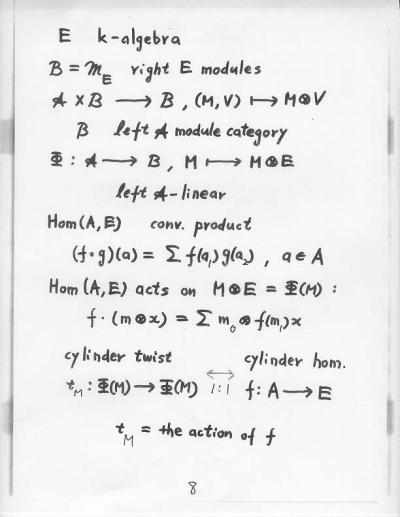 E k-algebra
ℬ = 𝓜_E right E modules
𝒜 × ℬ ⟶ ℬ, (M, V) ⟼ M⊗V
ℬ left 𝒜 module category
Φ : 𝒜 ⟶ ℬ, M ⟼ M⊗E
left 𝒜-linear
Hom(A, E) conv. product
(f·g)(a) = Σ f(a₁)g(a₂), a ∈ A
Hom(A, E) acts on M⊗E = Φ(M) :
f·(m⊗x) = Σ m₀⊗f(m₁)x
cylinder twist cylinder hom.
t_M : Φ(M)→Φ(M) ⟷ 1:1 f: A ⟶ E
t_M = the action of f
8